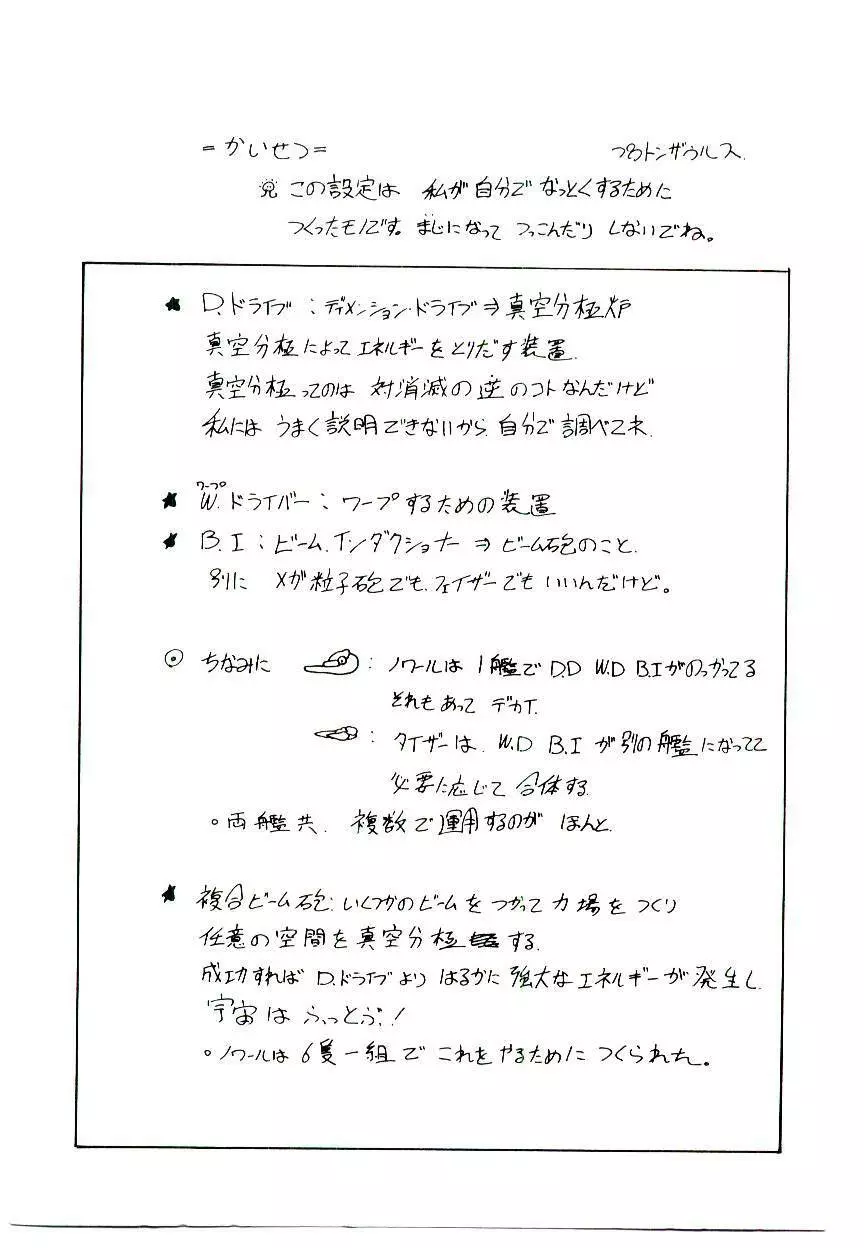 =かいせつ=
つるトンザウルス.
※この設定は 私が自分で なっとくするために
つくったモノです。まじになって つっこんだり しないでね。
★ D.ドライブ：ディメンション・ドライブ⇒真空分極炉
真空分極によって エネルギーをとりだす装置.
真空分極ってのは 対消滅の逆のコトなんだけど
私には うまく説明できないから 自分で調べてネ.
ワープ
★ W.ドライバー：ワープするための装置
★ B.I：ビーム.インダクショナー⇒ビーム砲のこと.
別に メガ粒子砲でも.フェイザーでもいいんだけど。
⊙ ちなみに ：ノワールは 1艦で D.D W.D B.Iがのっかってる
それもあって デカイ.
：タイザーは. W.D B.I が別の艦になってて
必要に応じて 合体する.
○両艦共. 複数で運用するのが ほんと.
★ 複合ビーム砲：いくつかのビームをつかって力場をつくり
任意の空間を真空分極する.
成功すれば D.ドライブより はるかに強大なエネルギーが発生し.
宇宙は ふっとぶ!
○ノワールは 6隻一組で これをやるために つくられた。